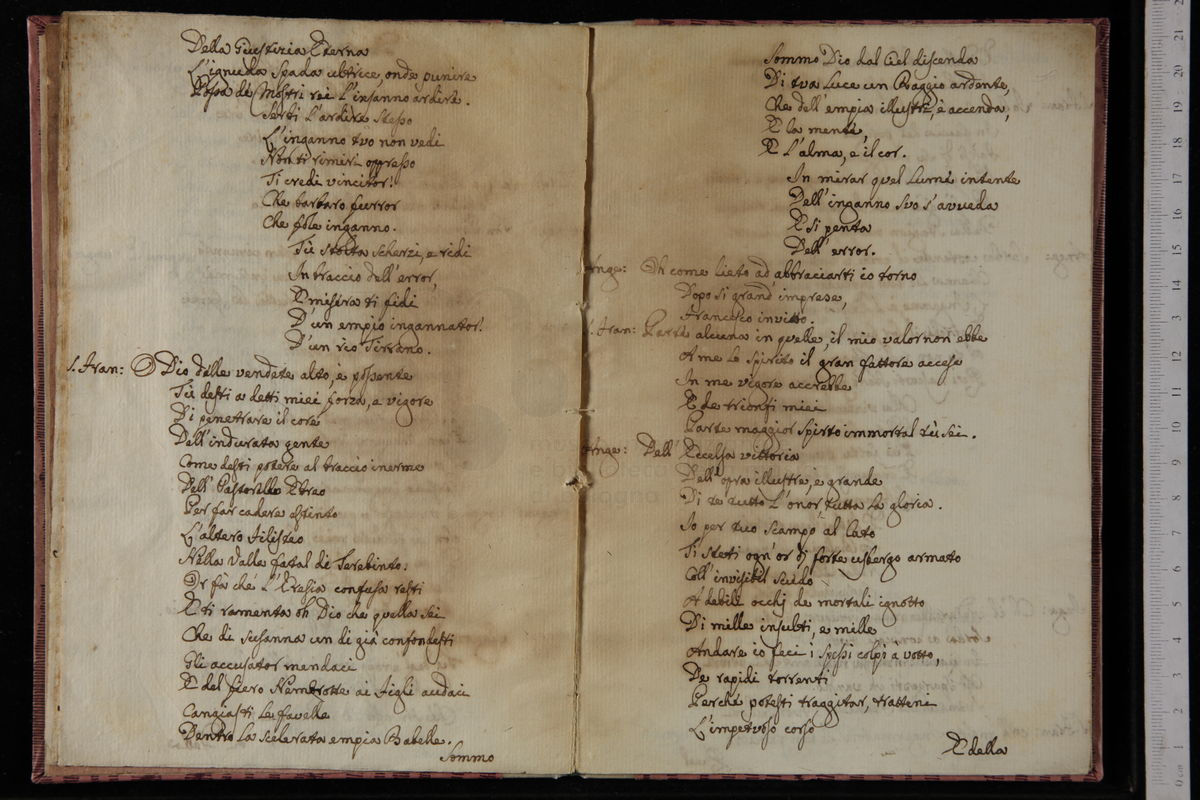 Della Giustizia Eterna
L'ignuda Spada ultrice, onde punire
Possa de Mostri rei L'insanno ardire.
Senti L'ardire stesso
L'inganno tuo non vedi
Non ti rimiri oppresso
Ti credi vincitor!
Che barbaro furror
Che folle inganno.
Tu stolta scherzi, e ridi
In braccio dell'error,
E misera ti fidi
D'un empio ingannator!
D'un rio Tiranno.
S. Fran: O Dio delle vendete alto, e possente
Tu desti a detti miei forza, e vigore
Di penetrare il core
Dell'indurata gente
Come desti potere al braccio inerme
Dell Pastorello Ebreo
Per far cadere estinto
L'altero Filisteo
Nella Valle fatal di Terebinto.
Or fà che L'Eresia confusa resti
E ti ramenta oh Dio che quello sei
Che di Susanna un dì già confondesti
Gli accusator mendaci
E del fiero Nembrotte ai Figli audaci
Cangiasti Le favelle
Dentro La scelerata empia Babelle.
Sommo
Sommo Dio dal Ciel discenda
Di tua Luce un Raggio ardente,
Che dell'empia illustri, e accenda,
E la mente,
E L'alma, e il cor.
In mirar quel Lume intente
Dell'inganno suo s'avveda
E si penta
Dell'error.
Ange: Oh come lieto ad abbracciarti io torno
Dopo si grand'imprese,
Francesco invitto.
S. Fran: Parte alcuna in quelle, il mio valor non ebbe
A me Lo Spirito il gran fattore accese
In me vigore accrebbe
E de trionfi miei
Parte maggior Spirto immortal tù sei.
Ange: Dell'Eccelsa vittoria
Dell'opra illustre, e grande
Di te tutto L'onor, tutta La gloria.
Io per tuo scampo al lato
Ti stetti ogn'or di forte usbergo armato
Coll'invisibil Scudo
A debili occhj de mortali ignotto
Di mille insulti, e mille
Andare io feci i spessi colpi a votto,
De rapidi torrenti
Perche potesti traggitar, tratteni
L'impetuoso corso
E della